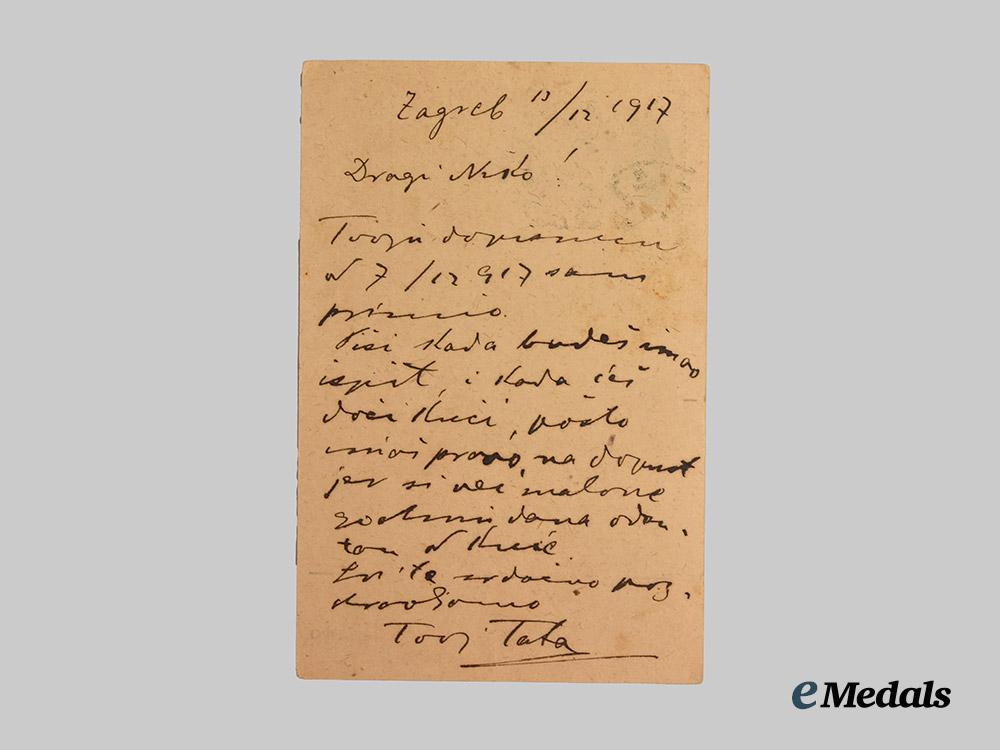 Zagreb 13/12 1917
Dragi Niko!
Tvoju dopisnicu
od 7/12 917 sam
primio.
Piši kada budeš imao
ispit, i kada ćeš
doći kući, pošto
imaš pravo, na dopust
jer si već malone
godinu dana odsu-
tan od kuće.
Svi te srdačno poz-
dravljamo
Tvoj Tata
eMedals